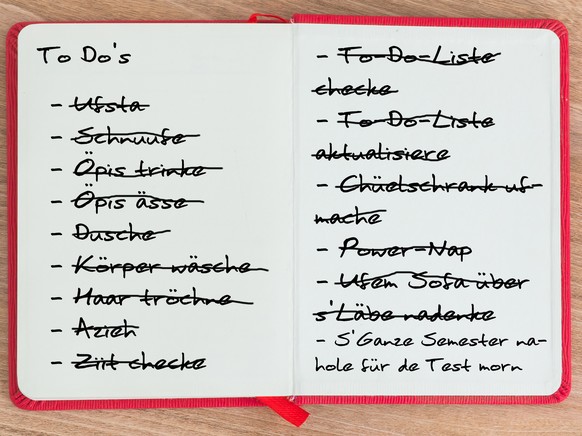 To Do's
- Ufsta
- Schnuufe
- Öpis trinke
- Öpis ässe
- Dusche
- Körper wäsche
- Haar tröchne
- Azieh
- Ziit checke
- To-Do-Liste
checke
- To-Do-Liste
aktualisiere
- Chüelschrank uf-
mache
- Power-Nap
- Ufem Sofa über
s'Läbe nadenke
- S'Ganze Semester na-
hole für de Test morn